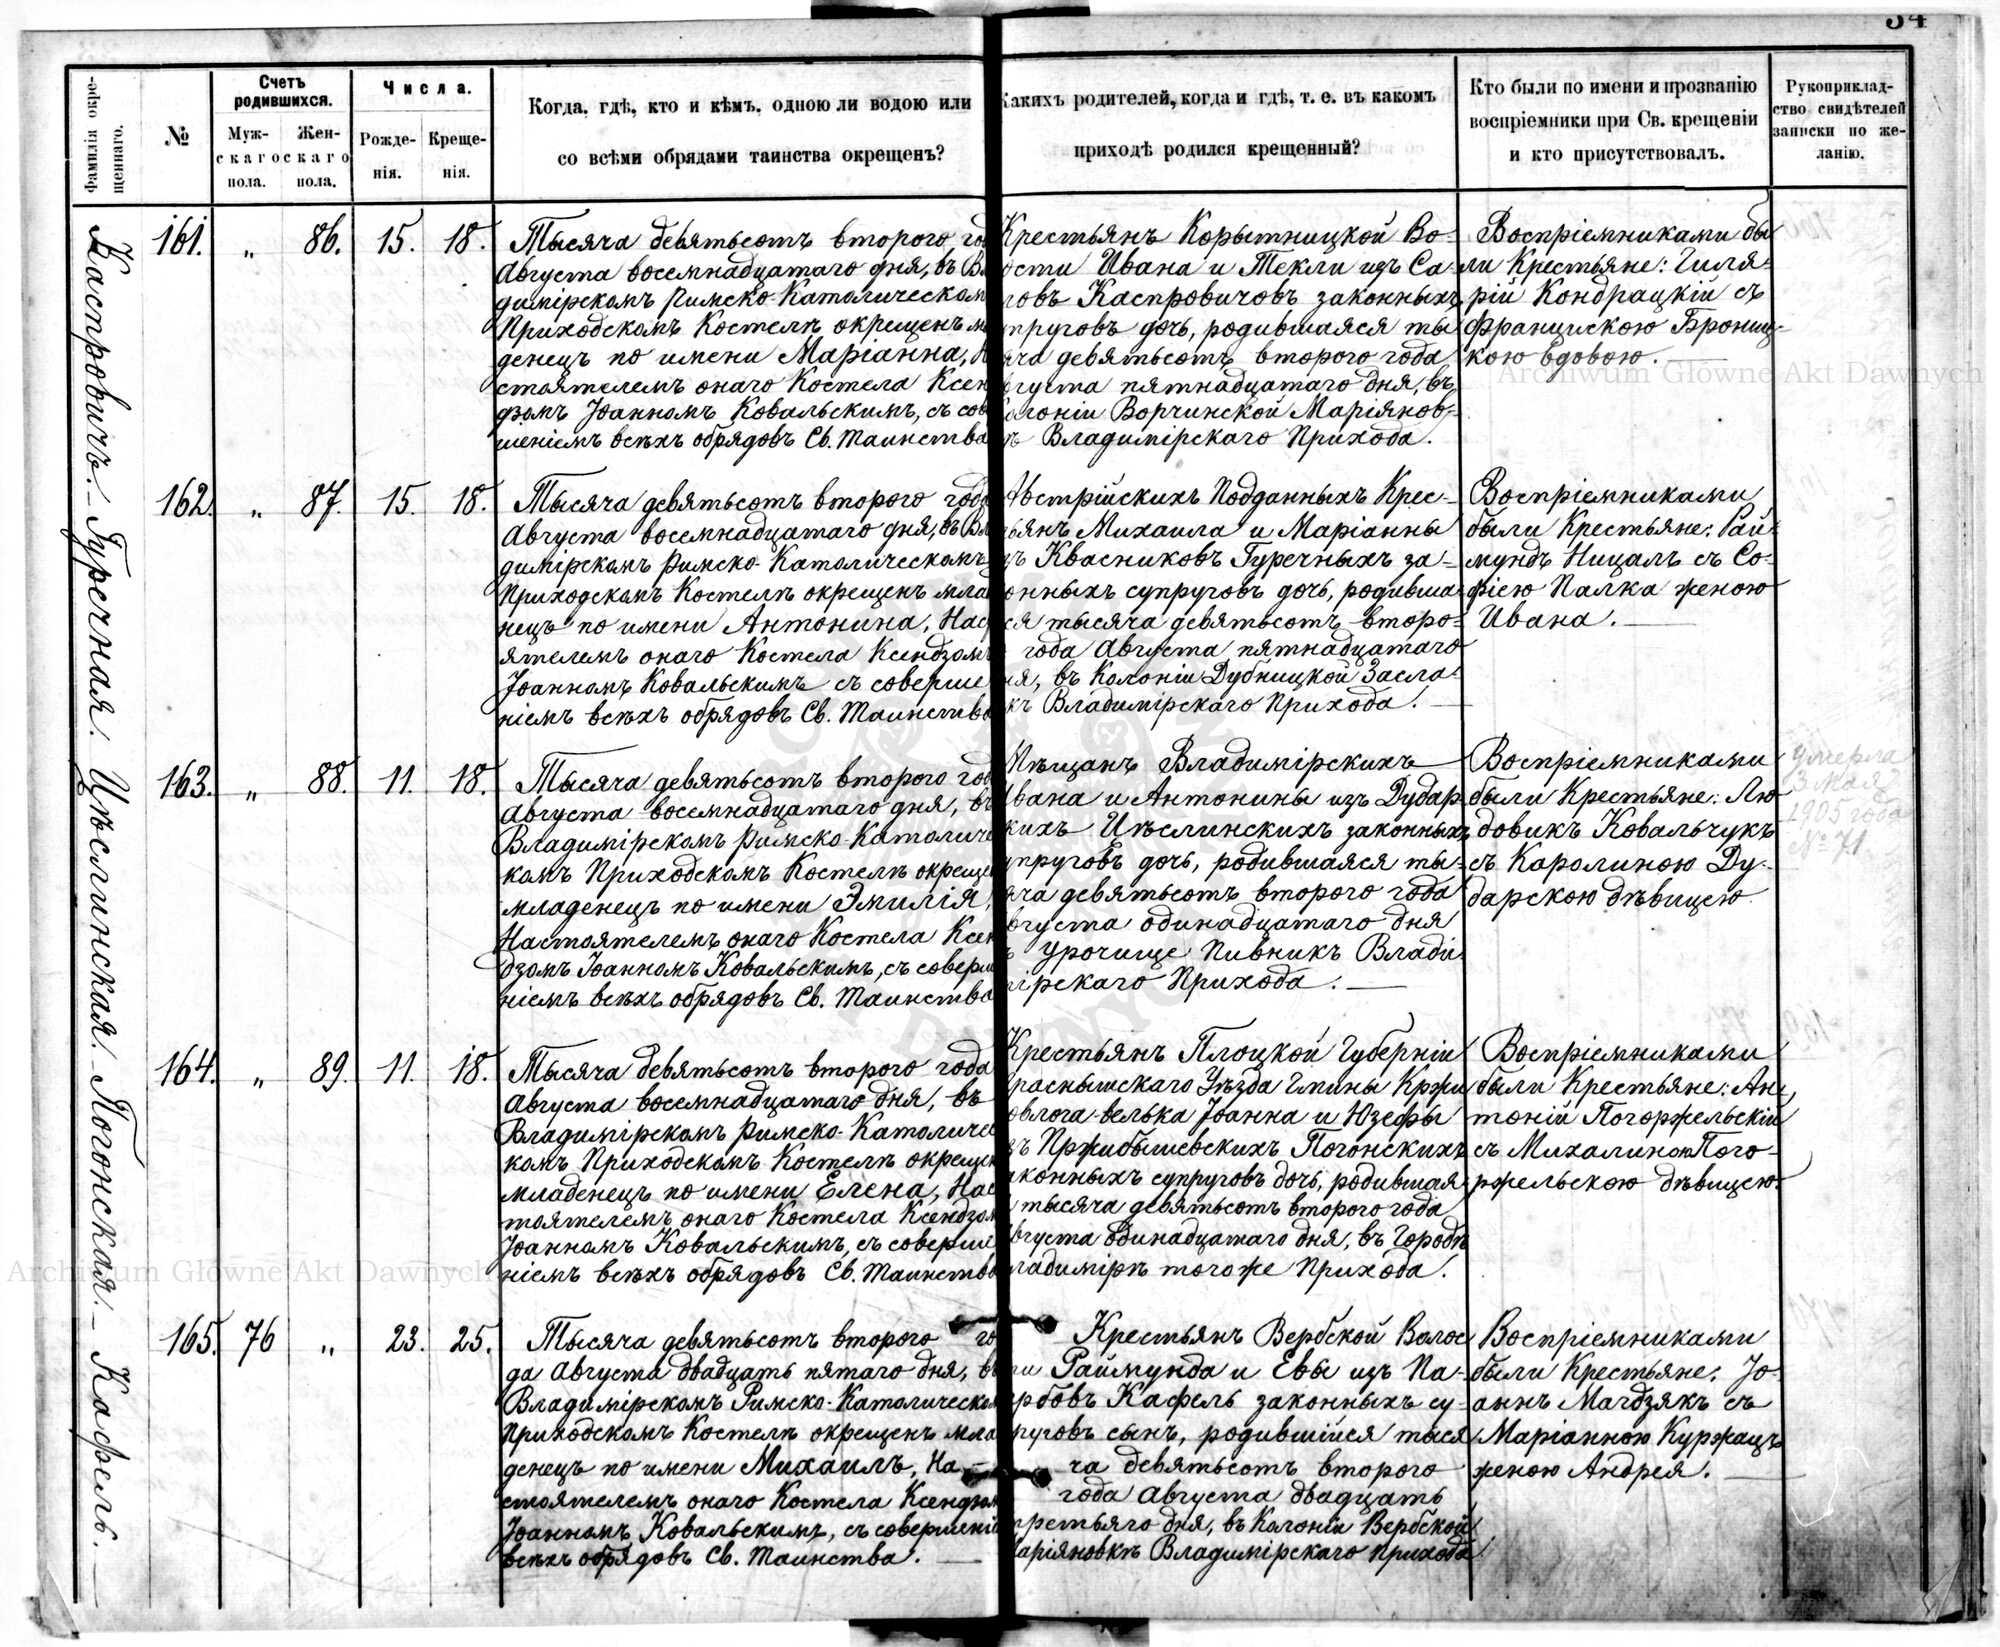 34
Фамилія окре-
щеннаго.
№
Счетъ
родившихся.
Муж-
скаго
пола.
Жен-
скаго
пола.
Числа.
Рожде-
нія.
Креще-
нія.
Когда, гдѣ, кто и кѣмъ, одною ли водою или
со всѣми обрядами таинства окрещенъ?
Какихъ родителей, когда и гдѣ, т. е. въ какомъ
приходѣ родился крещенный?
Кто были по имени и прозванію
воспріемники при Св. крещеніи
и кто присутствовалъ.
Рукоприклад-
ство свидѣтелей
записки по же-
ланію.
Каспровичъ.
161. „ 86. 15. 18.
Тысяча девятьсотъ второго год
Августа восемнадцатаго дня, въ Вл
димірскомъ Римско-Католическом
Приходскомъ Костелѣ окрещенъ м
денецъ по имени Маріанна, Н
стоятелемъ онаго Костела Ксен
дзомъ Іоанномъ Ковальскимъ, съ сов
шеніемъ всѣхъ обрядовъ Св. Таинства
Крестьянъ Корытницкой Во-
ости Ивана и Текли изъ Са-
говъ Каспровичовъ законныхъ
пруговъ дочь, родившаяся ты
яча девятьсотъ второго года
вгуста пятнадцатаго дня, въ
олоніи Ворчинской Маріянов-
ѣ Владимірскаго Прихода.
Воспріемниками бы
ли Крестьяне: Гиля-
рій Кондрацкій съ
Францискою Брониц-
кою вдовою.
Гуречная.
162. „ 87. 15. 18.
Тысяча девятьсотъ второго года
Августа восемнадцатаго дня, въ Вла
димірскомъ Римско-Католическомъ
Приходскомъ Костелѣ окрещенъ мла
нецъ по имени Антонина, Нас
ятелемъ онаго Костела Ксендзомъ
Іоанномъ Ковальскимъ съ соверше
ніемъ всѣхъ обрядовъ Св. Таинства
Австрійскихъ Подданныхъ Крес-
ьянъ Михаила и Маріанны
зъ Квасниковъ Гуречныхъ за-
онныхъ супруговъ дочь, родивша-
ся тысяча девятьсотъ второ-
года Августа пятнадцатаго
ня, въ Колоніи Дубницкой Засла-
кѣ Владимірскаго Прихода.
Воспріемниками
были Крестьяне: Рай-
мундъ Ницалъ съ Со-
фіею Палка женою
Ивана.
Цѣслинская.
163. „ 88. 11. 18.
Тысяча девятьсотъ второго год
Августа восемнадцатаго дня, въ
Владимірскомъ Римско-Католиче
комъ Приходскомъ Костелѣ окреще
младенецъ по имени Эмилія,
Настоятелемъ онаго Костела Ксен
дзомъ Іоанномъ Ковальскимъ, съ соверш
ніемъ всѣхъ обрядовъ Св. Таинства
Мѣщанъ Владимірскихъ
Ивана и Антонины изъ Дудар
кихъ Цѣслинскихъ законныхъ
упруговъ дочь, родившаяся ты-
яча девятьсотъ второго года
вгуста одинадцатаго дня
ъ урочище Пивникъ Влади
мірскаго Прихода.
Воспріемниками
были Крестьяне: Лю-
довикъ Ковальчукъ
съ Каролиною Ду-
дарскою дѣвицею.
Умерла
3 Мая
1905 года
№ 71.
Погонская.
164. „ 89. 11. 18.
Тысяча девятьсотъ второго года
Августа восемнадцатаго дня, въ
Владимірскомъ Римско-Католичес
комъ Приходскомъ Костелѣ окрещен
младенецъ по имени Елена, Нас
тоятелемъ онаго Костела Ксендзом
Іоанномъ Ковальскимъ, съ соверше
ніемъ всѣхъ обрядовъ Св. Таинства
Крестьянъ Плоцкой Губерніи
Праснышскаго Уѣзда Гмины Кржи
овлога-велька Іоанна и Юзефы
зъ Пржибышевскихъ Погонскихъ
аконныхъ супруговъ дочь, родившая-
тысяча девятьсотъ второго года
Августа одинадцатаго дня, въ Городѣ
ладимірѣ тогоже Прихода.
Воспріемниками
были Крестьяне: Ан-
тоній Погоржельскій
съ Михалиною Пого-
ржельскою дѣвицею.
Кафель.
165. 76 „ 23. 25.
Тысяча девятьсотъ второго го
да Августа двадцать пятаго дня, въ
Владимірскомъ Римско-Католическом
Приходскомъ Костелѣ окрещенъ мла
денецъ по имени Михаилъ, На-
стоятелемъ онаго Костела Ксендзом
Іоанномъ Ковальскимъ, съ совершені
всѣхъ обрядовъ Св. Таинства.
Крестьянъ Вербской Волос
ти Раймунда и Евы изъ Па-
рбовъ Кафель законныхъ су-
руговъ сынъ, родившійся тыся
ча девятьсотъ второго
года Августа двадцать
третьяго дня, въ Колоніи Вербской
Маріяновкѣ Владимірскаго Прихода
Воспріемниками
были Крестьяне: Іо-
аннъ Магдзякъ съ
Маріанною Куржацъ
женою Андрея.
Archiwum Główne Akt Dawnych
Archiwum Główne Akt Dawnych